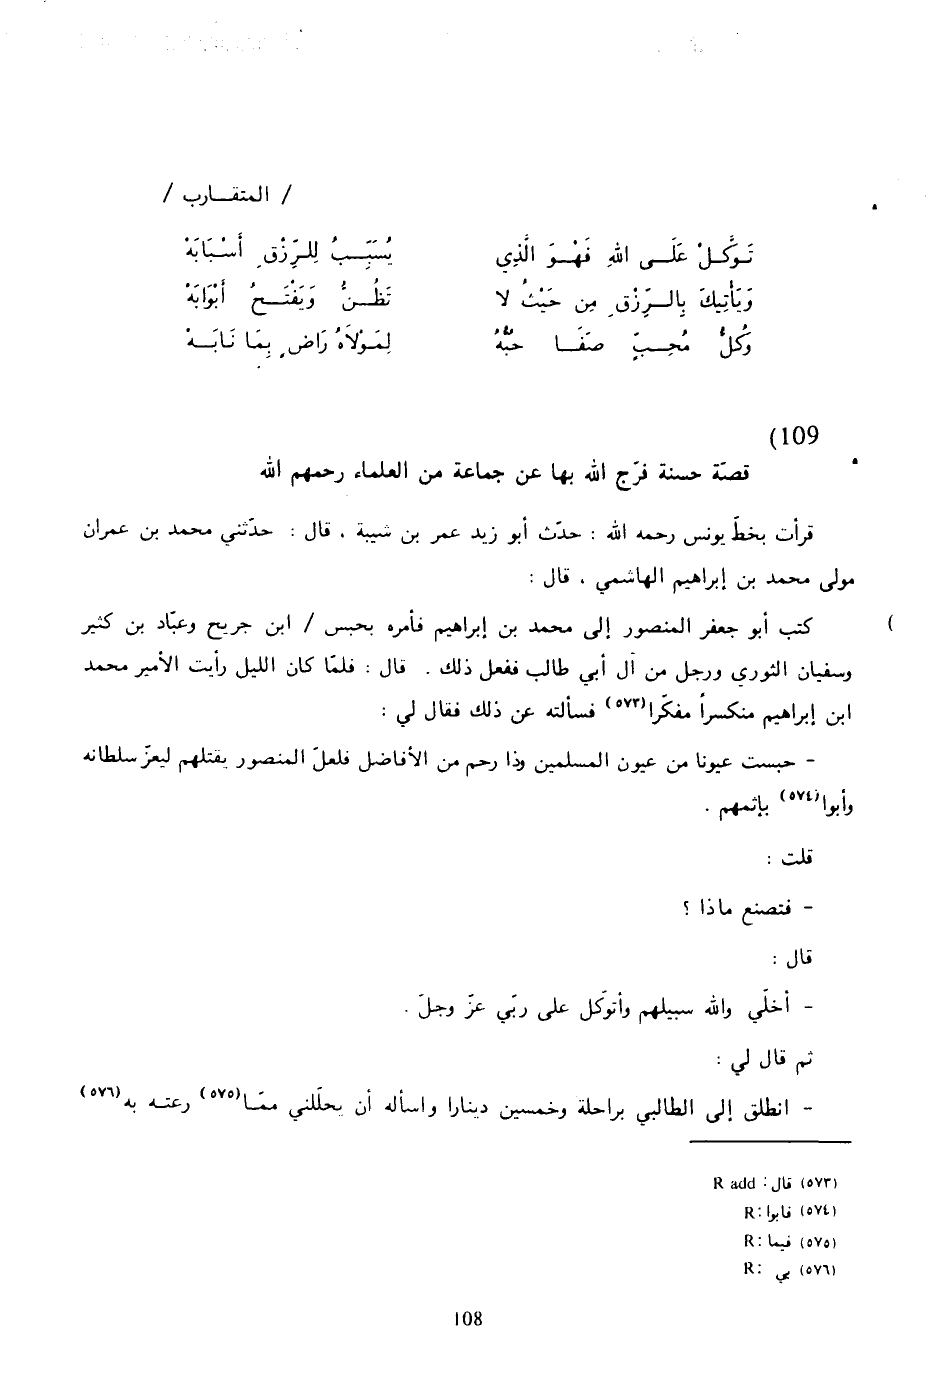 / المتقـــارب /
تَـوَكَّـلْ عَلَــى اللهِ فَهْــوَ الَّذِي يُسَبِّــبُ لِلرِّزْقِ أَسْـبَابَهْ
وَيَأْتِيكَ بِالـرِّزْقِ مِن حَيْثُ لا تَظُــنُّ وَيَفْتَــحُ أَبْوَابَهْ
وَكُلُّ مُحِــبٍّ صَفَــا حُبُّهُ لِمَـوْلاَهُ رَاضٍ بِمَا نَابَــهْ
(109
قصّة حسنة فرّج الله بها عن جماعة من العلماء رحمهم الله
قرأت بخطّ يونس رحمه الله : حدّث أبو زيد عمر بن شيبة ، قال : حدّثني محمد بن عمران
مولى محمد بن إبراهيم الهاشمي ، قال :
كتب أبو جعفر المنصور إلى محمد بن إبراهيم فأمره بحبس / ابن جريح وعبّاد بن كثير
وسفيان الثوري ورجل من آل أبي طالب ففعل ذلك . قال : فلمّا كان الليل رأيت الأمير محمد
ابن إبراهيم منكسراً مفكّرا(٥٧٣) فسألته عن ذلك فقال لي :
- حبست عيونا من عيون المسلمين وذا رحم من الأفاضل فلعلّ المنصور يقتلهم ليعزّ سلطانه
وأبوا(٥٧٤) بإثمهم .
قلت :
- فتصنع ماذا ؟
قال :
- أخلّي والله سبيلهم وأتوكّل على ربّي عزّ وجلّ .
ثم قال لي :
- انطلق إلى الطالبي براحلة وخمسين دينارا واسأله أن يحلّلني ممّا(٥٧٥) رعتـه به(٥٧٦)
(٥٧٣) قال : R add
(٥٧٤) فابوا : R
(٥٧٥) فيما : R
(٥٧٦) بي : R
108